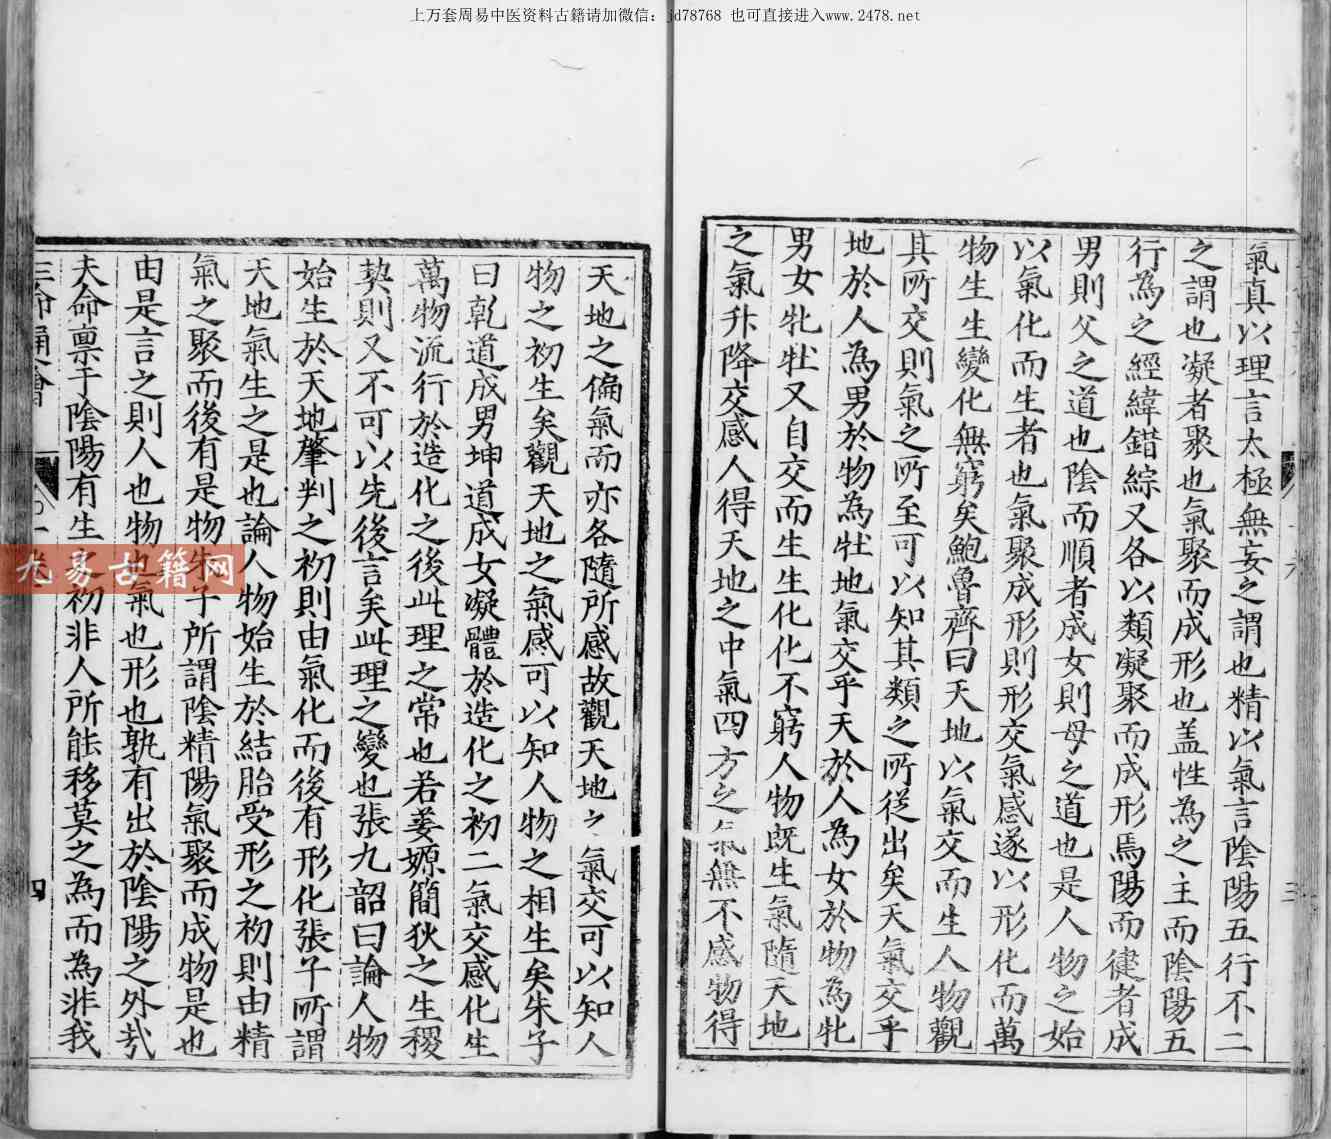 上万套周易中医资料古籍请加微信：jd78768 也可直接进入www.2478.net
氣真以理言太極無妄之謂也精以氣言陰陽五行不二
之謂也凝者聚也氣聚而成形也盖性為之主而陰陽五
行為之經緯錯綜又各以類凝聚而成形焉陽而健者成
男則父之道也陰而順者成女則母之道也是人物之始
以氣化而生者也氣聚成形則形交氣感遂以形化而萬
物生生變化無窮矣鮑魯齊曰天地以氣交而生人物觀
其所交則氣之所至可以知其類之所從出矣天氣交乎
地於人為男於物為牡地氣交乎天於人為女於物為牝
男女牝牡又自交而生生化化不窮人物既生氣隨天地
之氣升降交感人得天地之中氣四方之氣無不感物得
三
天地之偏氣而亦各隨所感故觀天地之氣交可以知人
物之初生矣觀天地之氣感可以知人物之相生矣朱子
曰乾道成男坤道成女凝體於造化之初二氣交感化生
萬物流行於造化之後此理之常也若姜嫄簡狄之生稷
契則又不可以先後言矣此理之變也張九韶曰論人物
始生於天地肇判之初則由氣化而後有形化張子所謂
天地氣生之是也論人物始生於結胎受形之初則由精
氣之聚而後有是物朱子所謂陰精陽氣聚而成物是也
由是言之則人也物也氣也形也孰有出於陰陽之外㢤
夫命禀于陰陽有生之初非人所能移莫之為而為非我
三命通會
四
九易古籍网